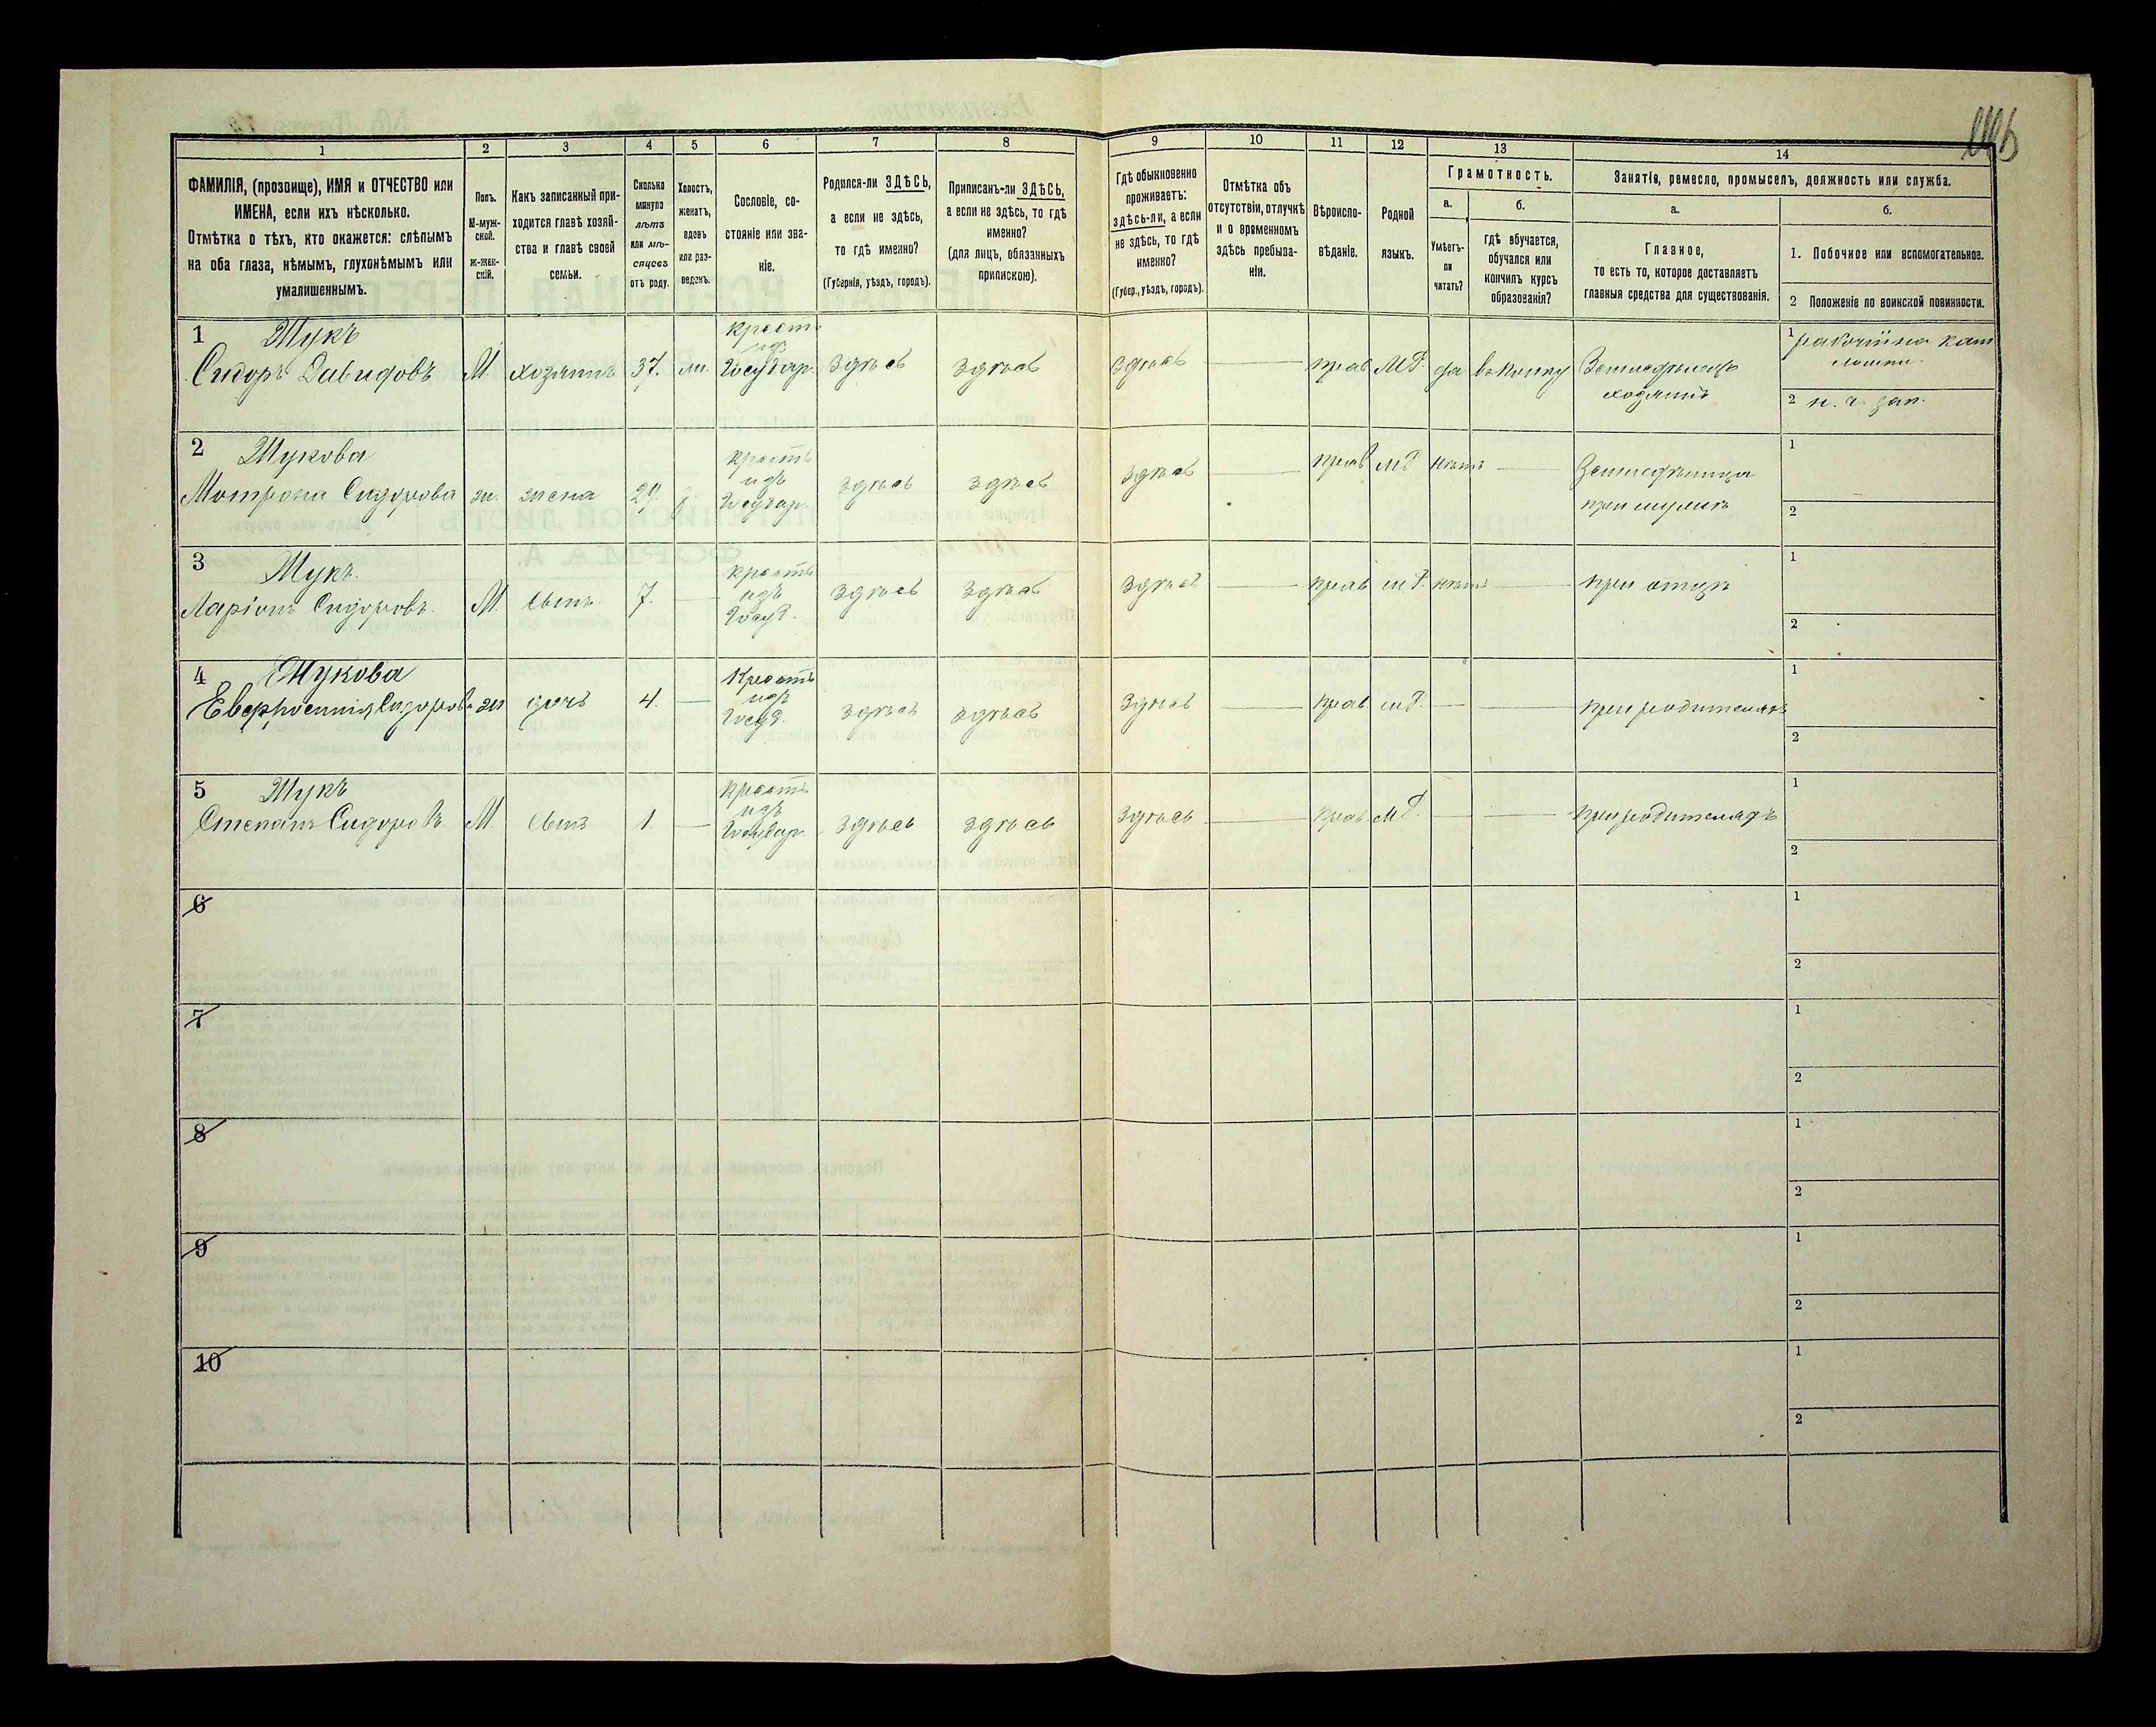 1 2 3 4 5 6 7 8 9 10 11 12 13 14
ФАМИЛІЯ, (прозвище), ИМЯ и ОТЧЕСТВО или
ИМЕНА, если ихъ нѣсколько.
Отмѣтка о тѣхъ, кто окажется: слѣпымъ
на оба глаза, нѣмымъ, глухонѣмымъ или
умалишеннымъ.
Полъ.
М-муж-
ской.
Ж-жен-
скій.
Какъ записанный при-
ходится главѣ хозяй-
ства и главѣ своей
семьи.
Сколько
минуло
лѣтъ
или мѣ-
сяцевъ
отъ роду.
Холостъ,
женатъ,
вдовъ
или раз-
веденъ.
Сословіе, со-
стояніе или зва-
ніе.
Родился-ли ЗДѢСЬ,
а если не здѣсь,
то гдѣ именно?
(Губернія, уѣздъ, городъ).
Приписанъ-ли ЗДѢСЬ,
а если не здѣсь, то гдѣ
именно?
(для лицъ, обязанныхъ
припискою).
Гдѣ обыкновенно
проживаетъ:
здѣсь-ли, а если
не здѣсь, то гдѣ
именно?
(Губер., уѣздъ, городъ).
Отмѣтка объ
отсутствіи, отлучкѣ
и о временномъ
здѣсь пребыва-
ніи.
Вѣроиспо-
вѣданіе.
Родной
языкъ.
Грамотность.
а.
Умѣетъ-
ли
читать?
б.
гдѣ обучается,
обучался или
кончилъ курсъ
образованія?
Занятіе, ремесло, промыселъ, должность или служба.
а.
Главное,
то есть то, которое доставляетъ
главныя средства для существованія.
б.
1. Побочное или вспомогательное.
2 Положеніе по воинской повинности.
1 Жукъ
Сидоръ Давидовъ М. хозяинъ 37. ж. крест. изъ Государ. Здѣсь Здѣсь Здѣсь прав М.Р. да Земледѣлецъ хозяинъ
1 рабочій на
2 н. ч. зап.
2 Жукова
Мотрона Сидорова ж. жена 29. крест. изъ Государ. здѣсь здѣсь здѣсь прав м.Р. нѣтъ Земледѣлица при мужѣ
1
2
3 Жукъ.
Ларіонъ Сидоровъ. М. сынъ. 7. крест. изъ Госуд. здѣсь здѣсь здѣсь прав м.Р. нѣтъ при отцѣ
1
2
4 Жукова
Евфросинія Сидоров. ж дочь 4. Крест. изъ Госуд. здѣсь здѣсь здѣсь прав м.Р. при родителяхъ
1
2
5 Жукъ
Степанъ Сидоровъ М. сынъ 1. крест. изъ Государ. здѣсь здѣсь здѣсь прав м.Р. при родителяхъ
1
2
6
1
2
7
1
2
8
1
2
9
1
2
10
1
2